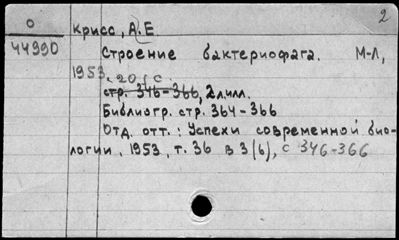 2
О
44990
Крисс, А.Е.
Строение бактериофага. М-Л,
1953, 20 с.
стр. 346-366, 2 л.илл.
Библиогр. стр. 364-366
Отд. отт.: Успехи современной био-
логии, 1953, т. 36 в 3(6), с 346-366